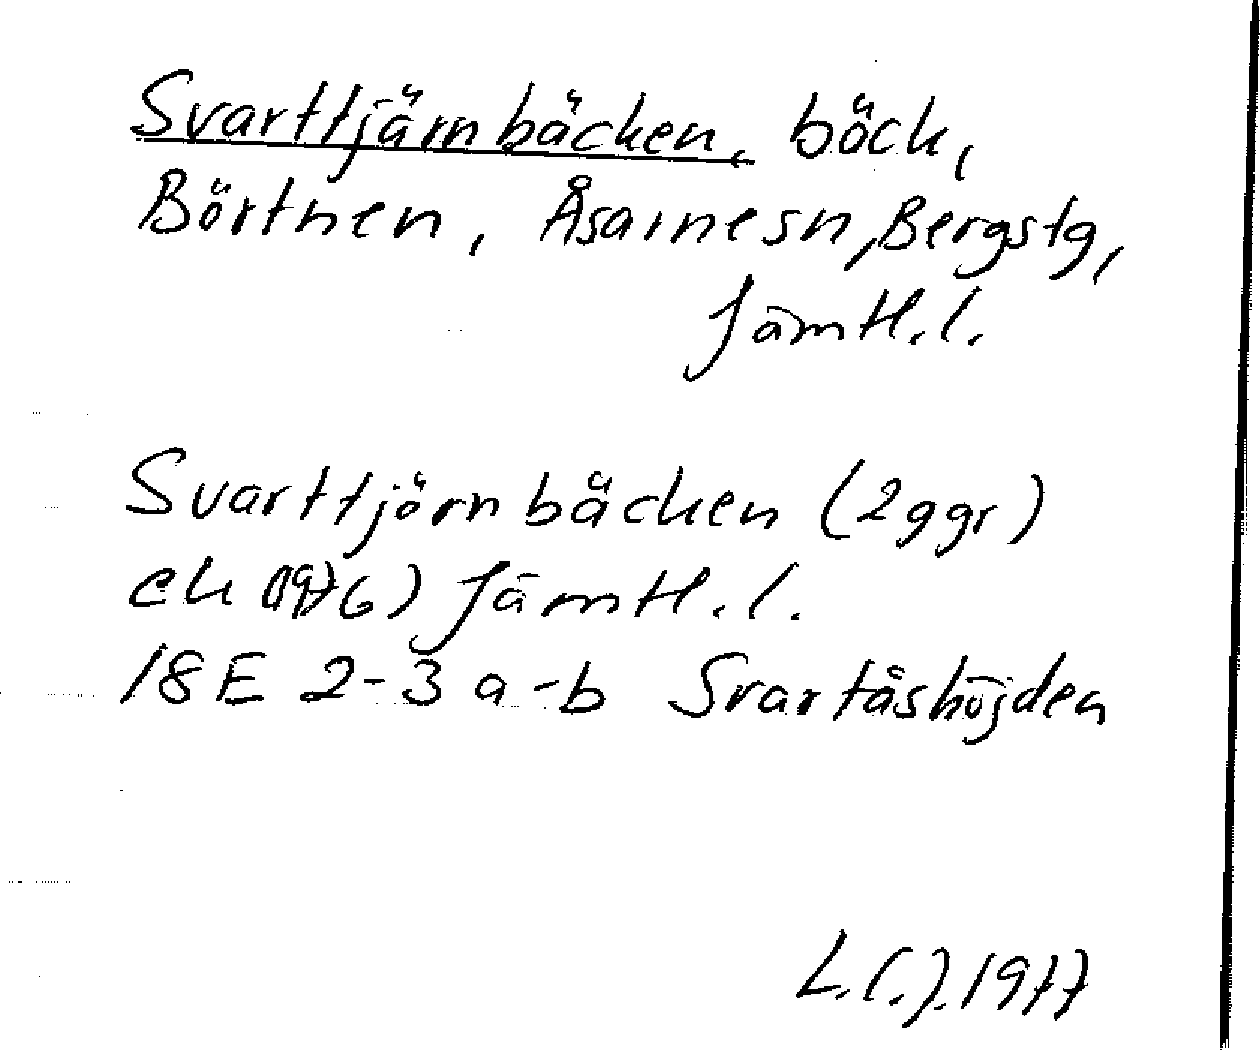 Svarttjärnbäcken, bäck,
Börtnen, Åsarnesn, Bergstg,
Jämtl.l.
Svarttjärnbäcken (2ggr)
ek (1976) Jämtl.l.
18E 2-3 a-b Svartåshöjden
1977